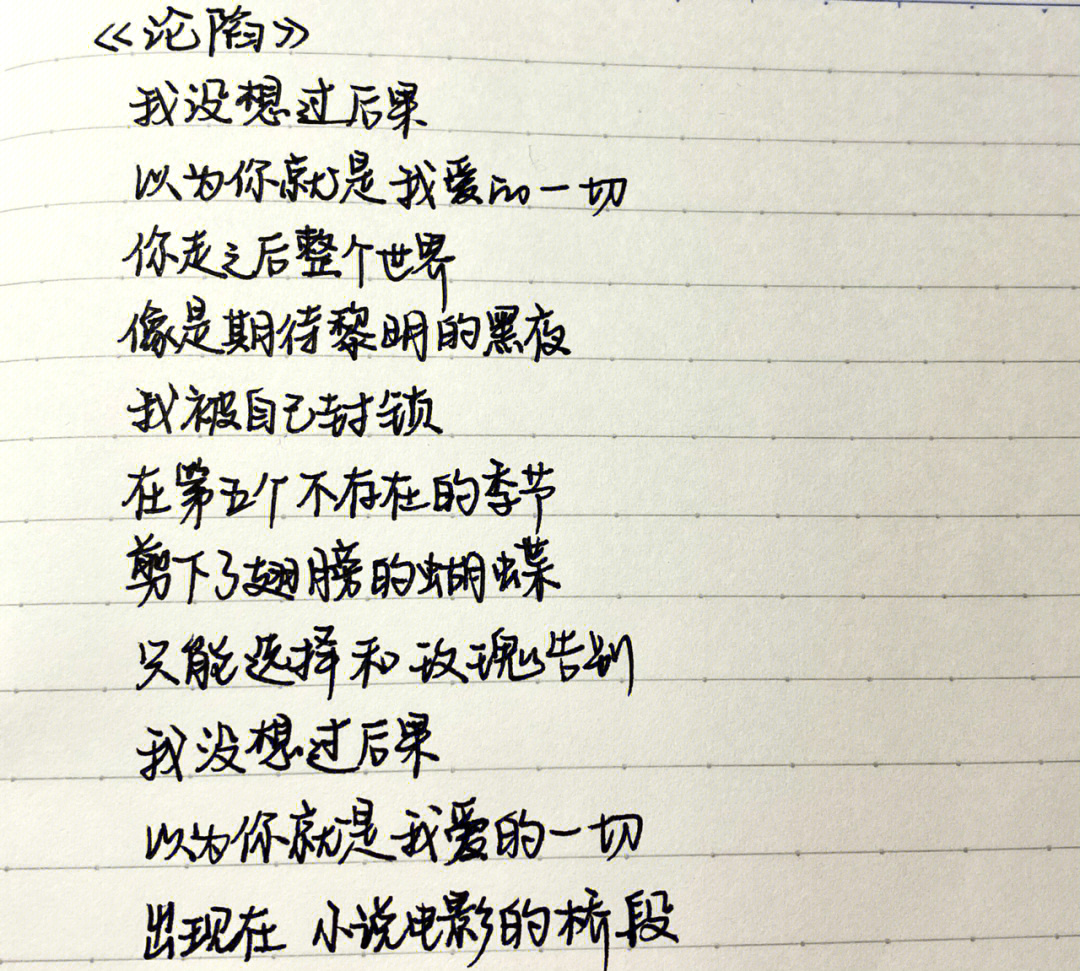 《沦陷》
我没想过后果
以为你就是我爱的一切
你走之后整个世界
像是期待黎明的黑夜
我被自己封锁
在第五个不存在的季节
剪下了翅膀的蝴蝶
只能选择和玫瑰告别
我没想过后果
以为你就是我爱的一切
出现在 小说电影的桥段